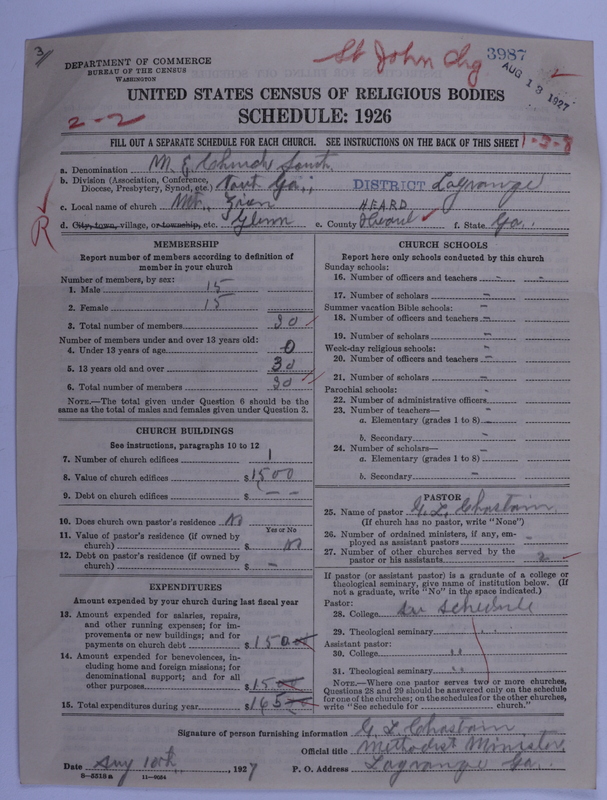 3
St John Chg
3987
AUG 13 1927
DEPARTMENT OF COMMERCE
BUREAU OF THE CENSUS
WASHINGTON
UNITED STATES CENSUS OF RELIGIOUS BODIES
2-2
SCHEDULE: 1926
FILL OUT A SEPARATE SCHEDULE FOR EACH CHURCH. SEE INSTRUCTIONS ON THE BACK OF THIS SHEET
1-3-8
a. Denomination M. E. Church South
b. Division (Association, Conference, Diocese, Presbytery, Synod, etc.) Nort Ga., DISTRICT Lagrange
c. Local name of church Mt. Zion HEARD
d. City, town, village, or township, etc. Glenn e. County Heard f. State Ga.
R
MEMBERSHIP
Report number of members according to definition of
member in your church
Number of members, by sex:
1. Male 15
2. Female 15
3. Total number of members 30
Number of members under and over 13 years old:
4. Under 13 years of age 0
5. 13 years old and over 30
6. Total number of members 30
NOTE.—The total given under Question 6 should be the
same as the total of males and females given under Question 3.
CHURCH BUILDINGS
See instructions, paragraphs 10 to 12
7. Number of church edifices 1
8. Value of church edifices $ 1500
9. Debt on church edifices $ - -
10. Does church own pastor's residence No
Yes or No
11. Value of pastor's residence (if owned by
church) $ No
12. Debt on pastor's residence (if owned by
church) $ -
EXPENDITURES
Amount expended by your church during last fiscal year
13. Amount expended for salaries, repairs,
and other running expenses; for im-
provements or new buildings; and for
payments on church debt $ 150
14. Amount expended for benevolences, in-
cluding home and foreign missions; for
denominational support; and for all
other purposes $ 15
15. Total expenditures during year $ 165
CHURCH SCHOOLS
Report here only schools conducted by this church
Sunday schools:
16. Number of officers and teachers -
17. Number of scholars -
Summer vacation Bible schools:
18. Number of officers and teachers -
19. Number of scholars -
Week-day religious schools:
20. Number of officers and teachers -
21. Number of scholars -
Parochial schools:
22. Number of administrative officers -
23. Number of teachers—
a. Elementary (grades 1 to 8) -
b. Secondary -
24. Number of scholars—
a. Elementary (grades 1 to 8) -
b. Secondary -
PASTOR
25. Name of pastor G. L. Chastain
(If church has no pastor, write "None")
26. Number of ordained ministers, if any, em-
ployed as assistant pastors -
27. Number of other churches served by the
pastor or his assistants 2
If pastor (or assistant pastor) is a graduate of a college or
theological seminary, give name of institution below. (If
not a graduate, write "No" in the space indicated.)
Pastor:
28. College schedule
29. Theological seminary "
Assistant pastor:
30. College "
31. Theological seminary "
NOTE.—Where one pastor serves two or more churches,
Questions 28 and 29 should be answered only on the schedule
for one of the churches; on the schedules for the other churches,
write "See schedule for church."
Signature of person furnishing information G. L. Chastain
Official title Methodist Minister
Date Aug 10th, 1927 P. O. Address Lagrange Ga.
8—5518 a 11—9084